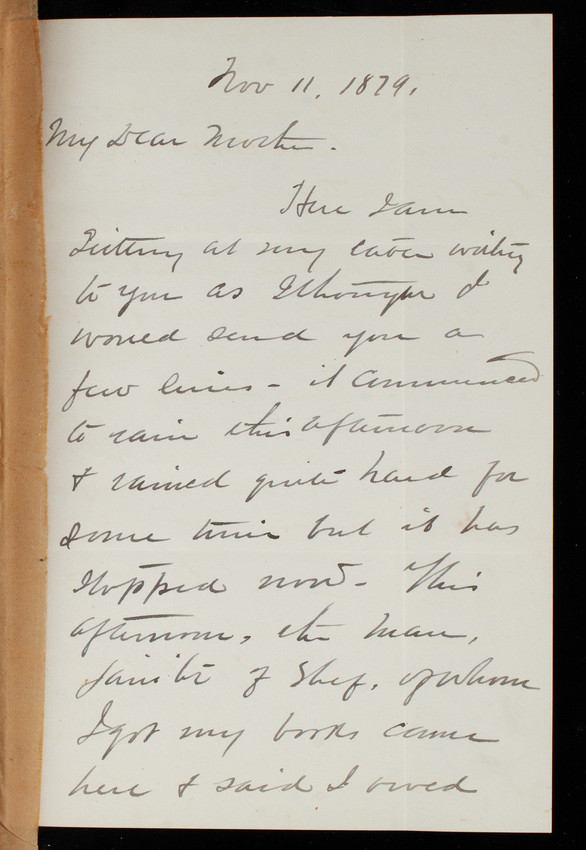 Nov 11, 1879.
My Dear Mother.
Here I am
Sitting at my table writing
to you as I thought I
would send you a
few lines - it commenced
to rain this afternoon
& rained quite hard for
some time but it has
stopped now - This
afternoon, the man,
Janitor of Shef, of whom
I got my books came
here & said I owed